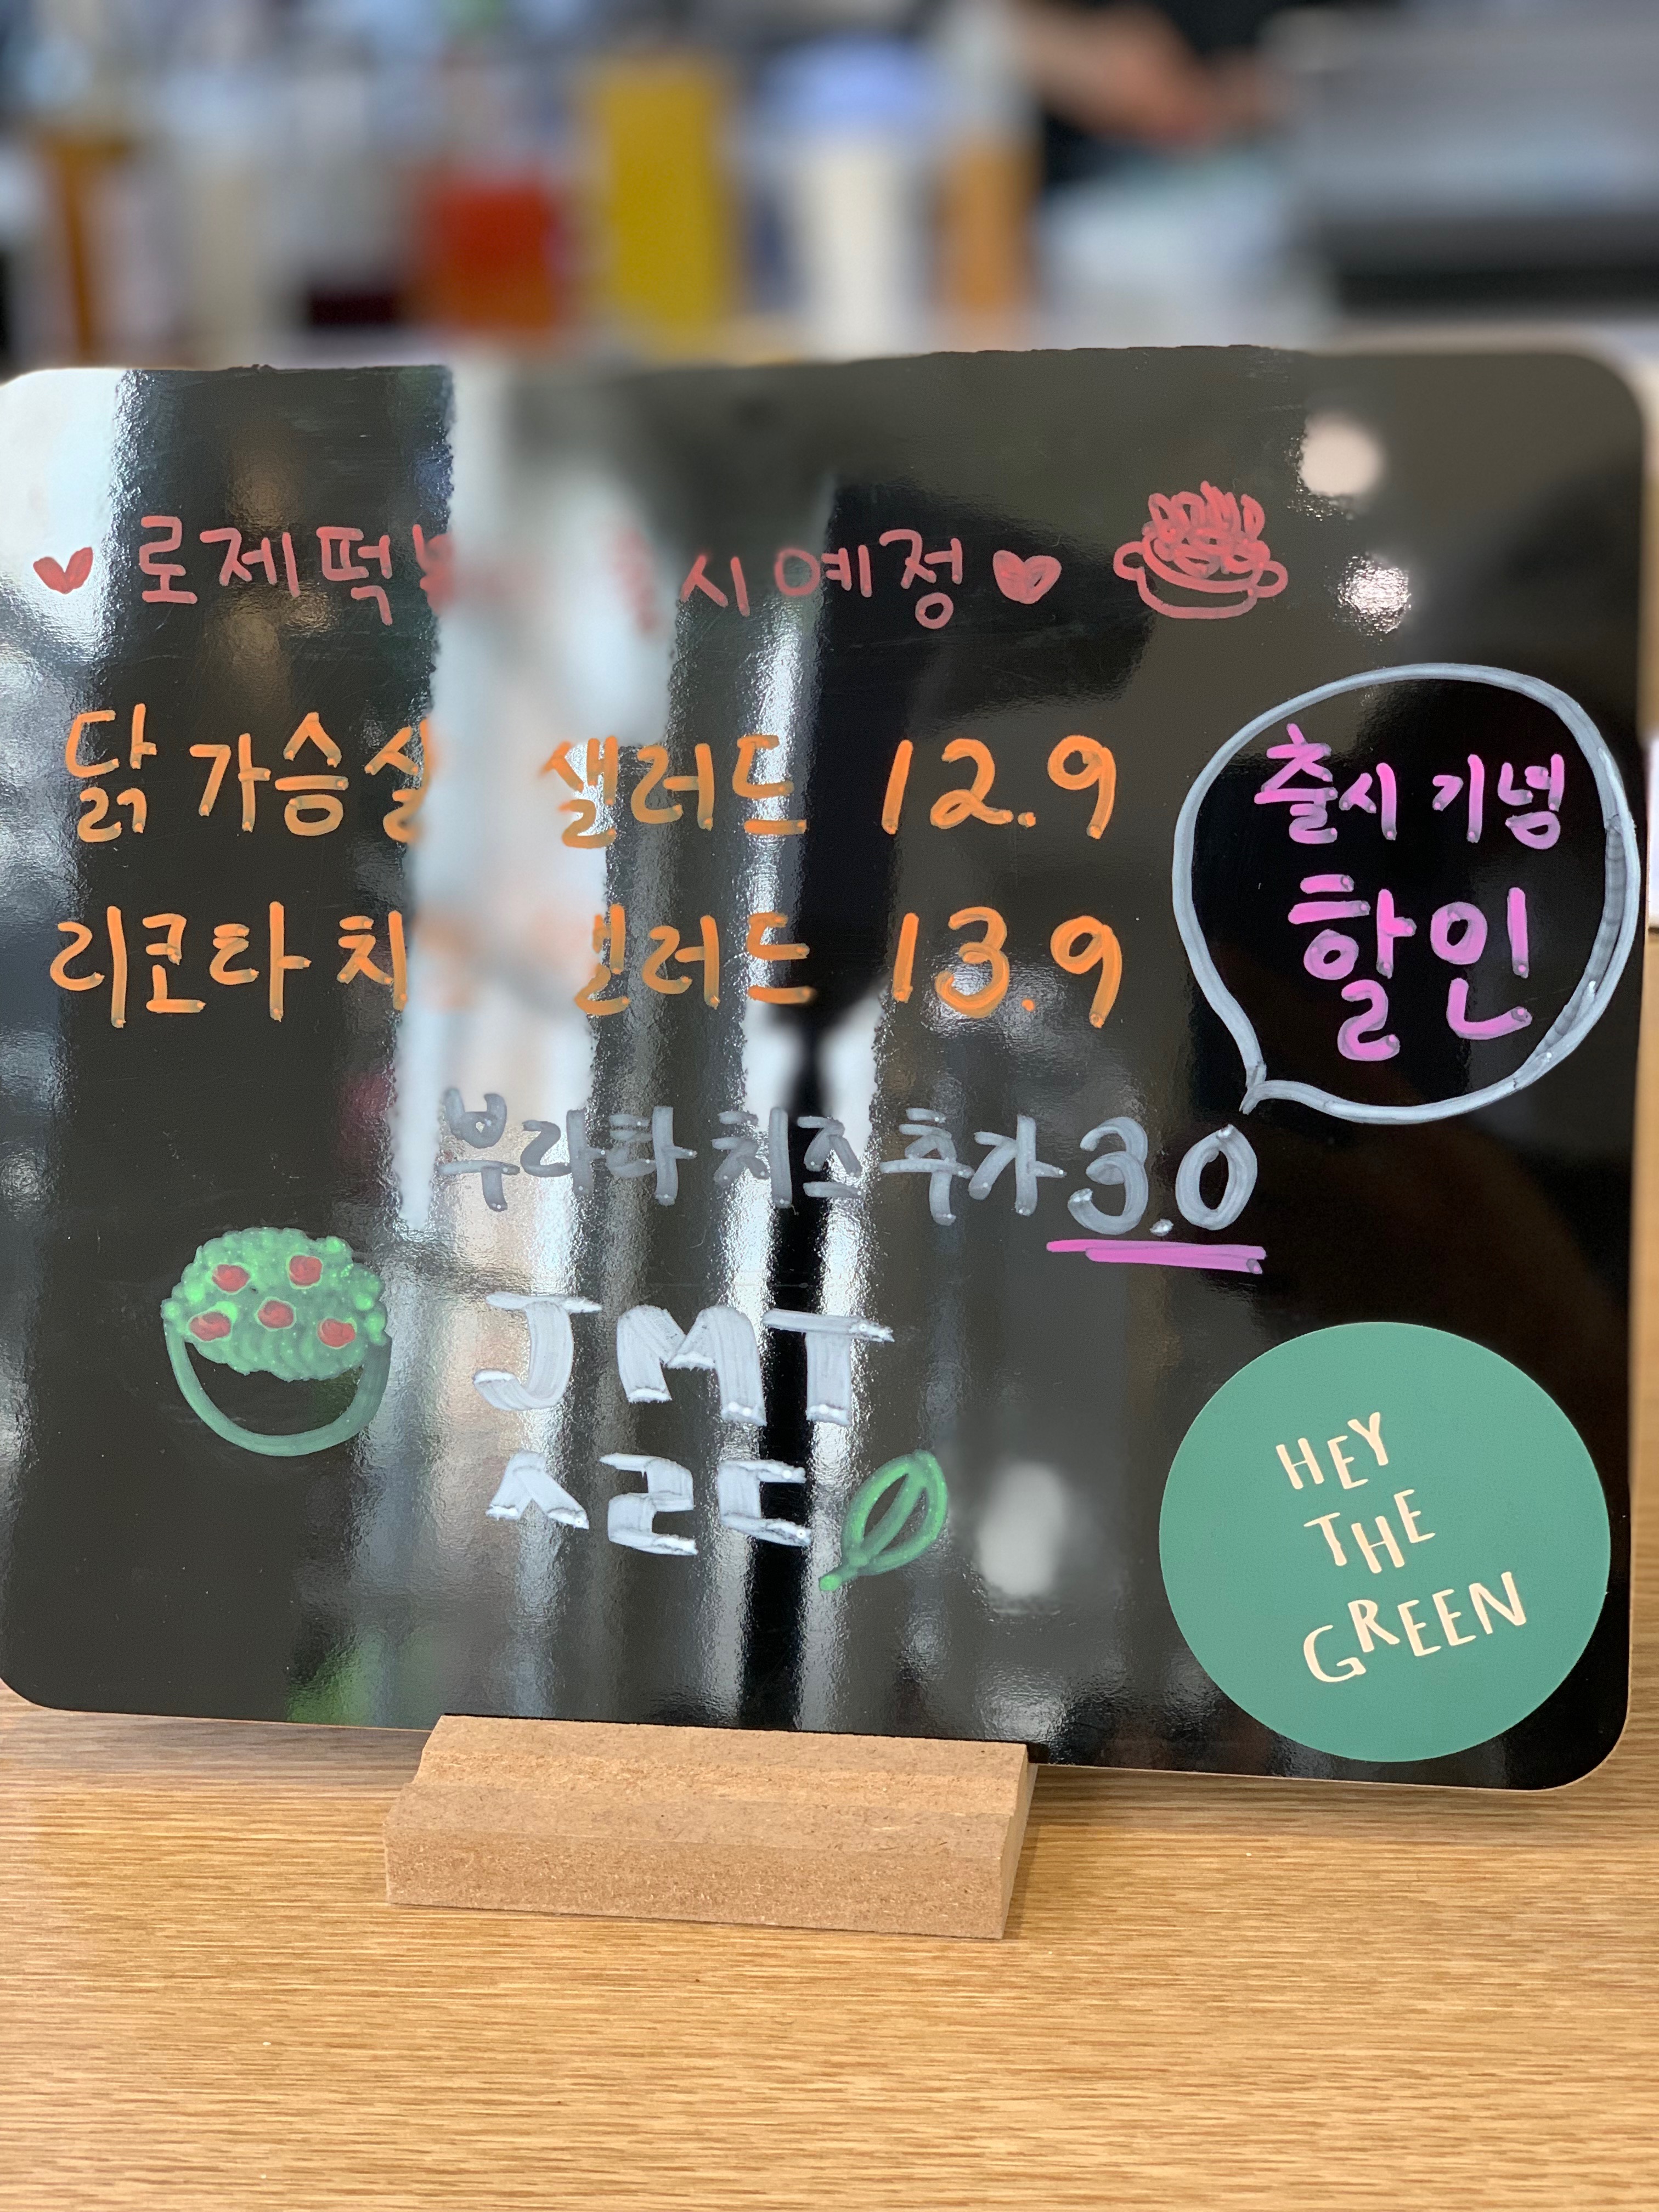 로제떡 출시예정
닭가슴살 샐러드 12.9
리코타 치 샐러드 13.9
출시 기념
할인
부라타 치즈 추가 3.0
JMT
ㅅㄹㄷ
HEY
THE
GREEN